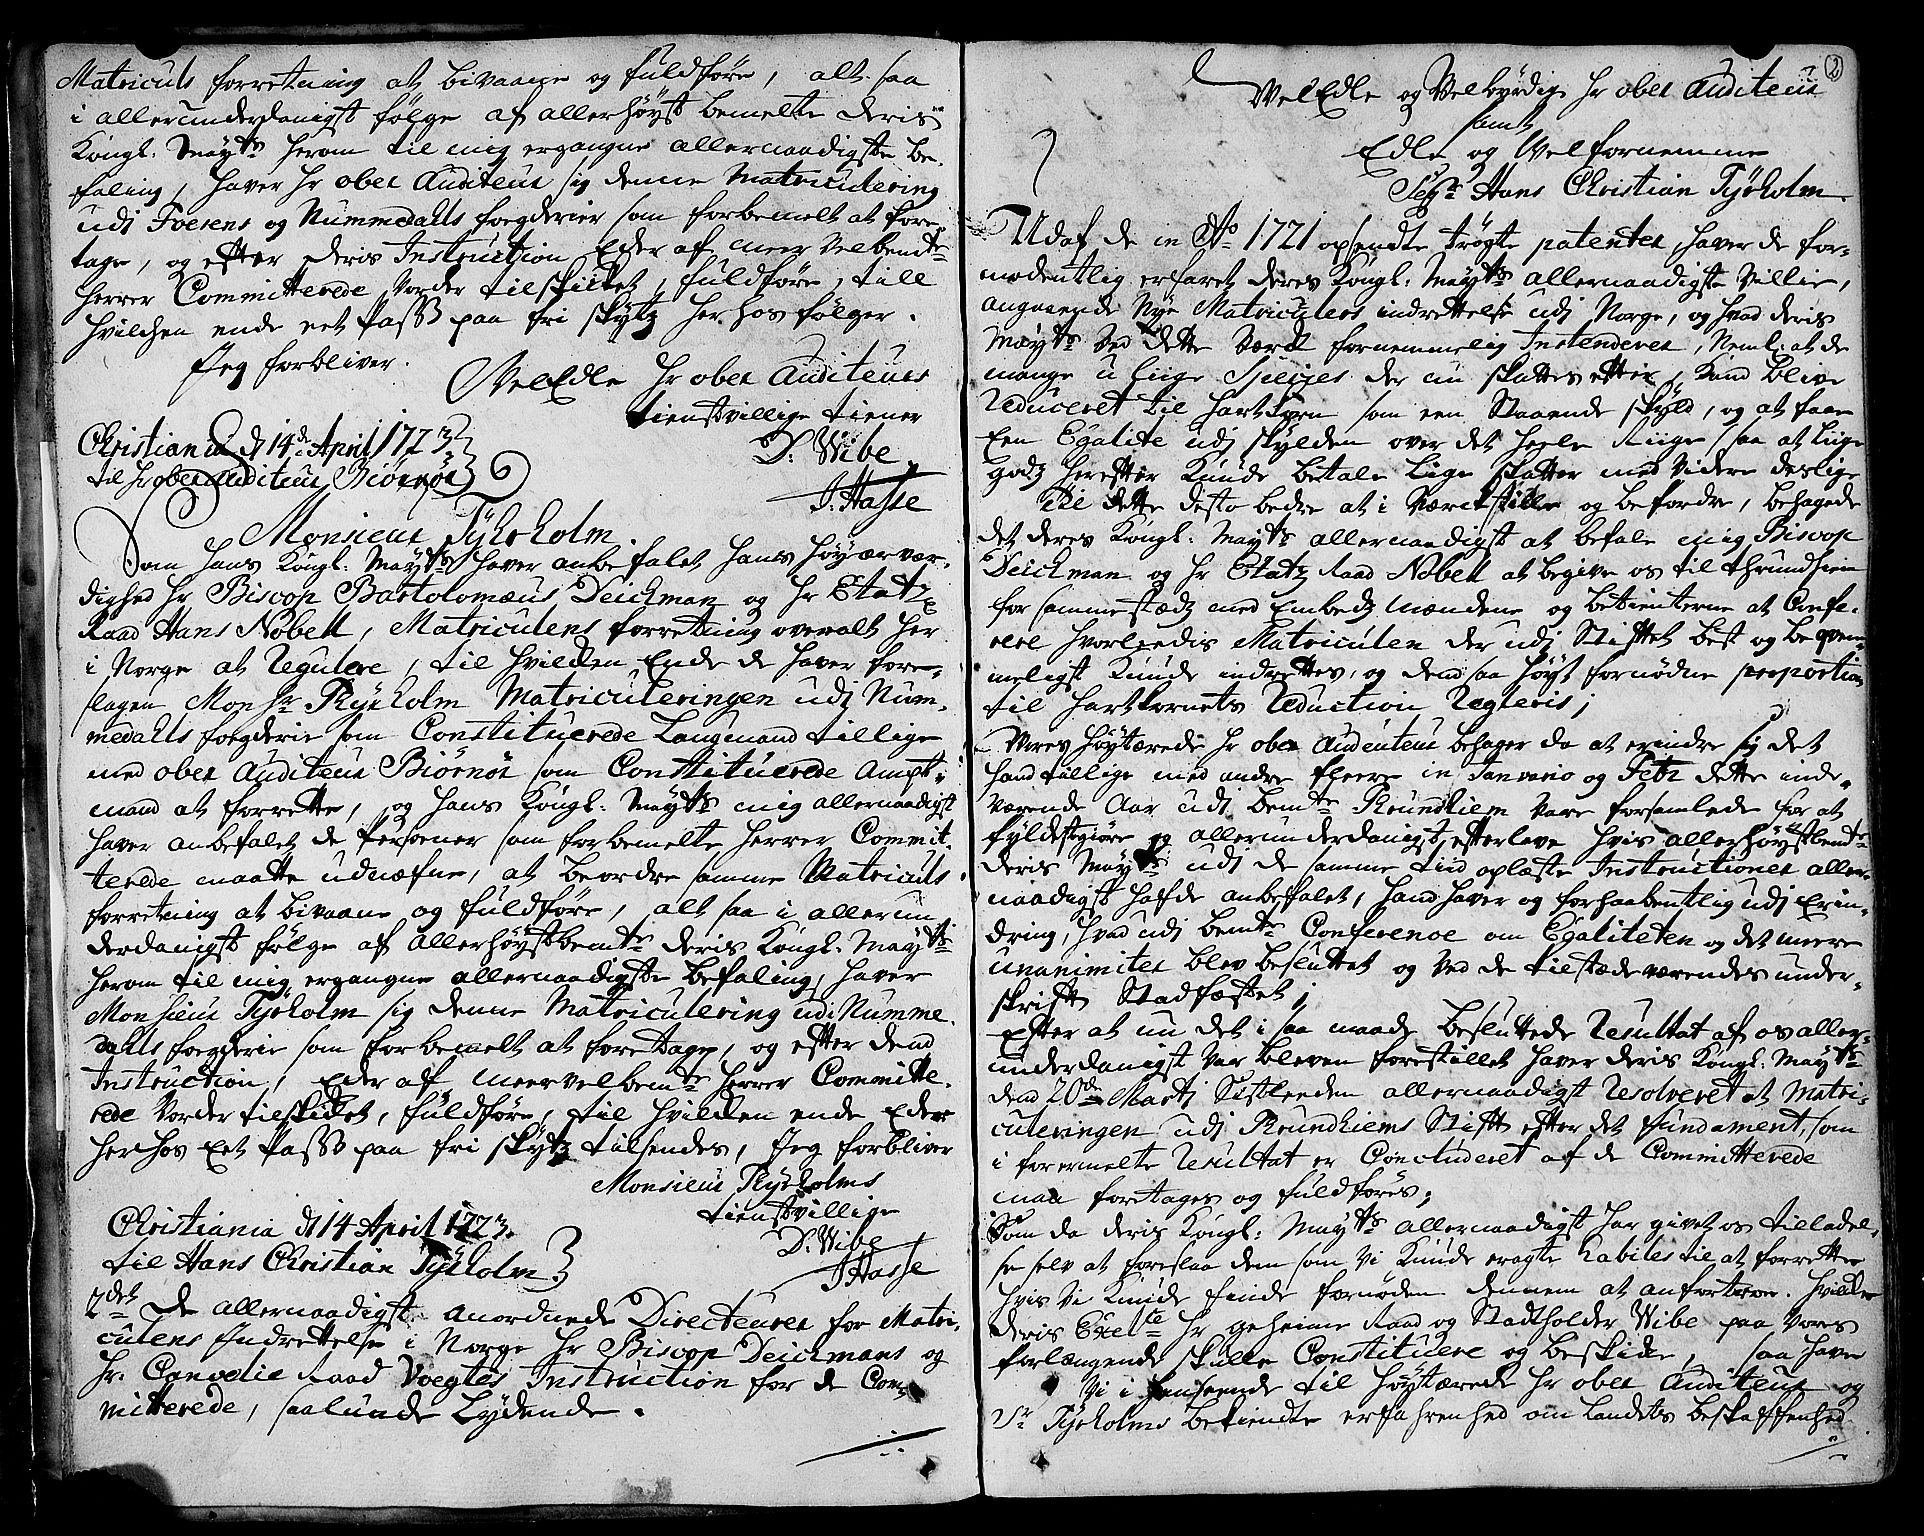 Matriculs forretning at bivaane og fuldføre, alt saa
i allerunderdanigst følge af allerhøyst bemelte deris
Kongl: Mayts herom til mig ergangne allernaadigste be-
faling, haver hr ober Auditeur sig denne Matriculering
udi Foesens og Nummedahls foegderier som forbemelt at fore-
tage, og efter deris Instruction Eder af meer velbemte
herrer Committerede vorder tilskicket, fuldføre, till
hvilchen ende eet Pass paa fri skytz herhos følger.
Jeg forbliver.
VelEdle hr ober Auditeurs
tienstvillige tiener
Christiania d 14de April 1723.
D: Wibe
til hr ober Auditeur Biørnør
J: Hasse
Monsieur Tyrholm.
Som hans Kongl: Mayts haver anbefalet hans høyærvær-
dighed hr Biscop Bartolomæus Deichman og hr Etatz
Raad Hans Nobell, Matriculens forretning overalt her
i Norge at Regulere, til hvilcken Ende de haver fore-
slagen Monsr Tyrholm Matriculeringen udj Num-
medahls foegderie som Constituerede Laugmand tillige
med ober Auditeur Biørnør som Constituerede Ampt-
mand at forrette, og hans Kongl: Mayts mig allernaadigst
haver anbefalet de Persoener som forbemelte herrer Commit-
terede maatte udnæfne, at beordre samme Matriculs
forretning at bivaane og fuldføre, alt saa i allerun-
derdanigst følge af allerhøystbemte deris Kongl: Mayts
herom til mig ergangne allernaadigste befaling, haver
Monsieur Tyrholm sig denne Matriculering udi Numme-
dahls foegderie som forbemelt at foretage, og efter dend
Instruction, Eder af meervelbemte herrer Committe-
rede vorder tilskicket, fuldføre, til hvilcken ende Eder
herhos eet Pass paa fri skytz tilsendes, Jeg forbliver
Monsieur Tyrholms
tienstvillige
Christiania d 14 April 1723.
D: Wibe
til Hans Christian Tyrholm
J Hasse
2det De allernaadigst anordnede Directeurer for Matri-
culens Indrettelse i Norge hr Biscop Deichmans og
hr. Cancelie Raad Voegtes Instruction for de Com-
mitterede, saalunde Lydende.
2
VelEdle og Velbyrdig hr ober Auditeur
samt
Edle og Velfornemme
Segr Hans Christian Tyrholm.
Udaf de in Ao 1721 opsendte trøgte patenter, haver de for-
modentlig erfaret deres Kongl: Mayts allernaadigste villie,
angaaende Nye Matriculers indrettelse udj Norge, og hvad deris
Mayts ved dette værck fornemmelig Intenderer, Neml: at de
mange u liige Species der nu skattes efter, kand blive
Reduceret til hartkorn som een Staaende skyld, og at faae
Een Egalite udj skylden over det heele Riige saa at liige
godz herefter kunde betale liige skatter med videre deslige
dette desto bedre at i værckstille og befordre, behagede
det deres Kongl: Mayts allernaadigst at befale mig Biscop
Deichman og hr Etatz Raad Nobell at begive os til thrundhiem
for sammestædz med Embedz mændene og betienterne at Confe-
rere hvorleedis Matriculen der udj Stiftet best og beqvem-
meligst kunde indrettes, og dend saa høyt fornødne proportion
til hartkornets Reduction Regleris;
Vores høytærede hr ober Auditeur behager da at erindre sig det
hand tillige med andre fleere in Januario og Febr dette inde-
værende Aar udj bemte Trundhiem vare forsamlede for at
fyldestgiøre og allerunderdanigst efterleve hvis allerhøystbemte
deris Mayts udi de samme tiid oplæste Instructioner aller-
naadigst hafde anbefalet, hand haver og forhaabentlig udj Erin-
dring, hvad udj bemte Conference om Egaliteten og det meere
unanimiter blev besluttet og ved de tilstædeværendes under-
skrift Stadfæstet;
Efter at nu det i saa maade besluttede Resultat af os aller-
underdanigst var bleven forestillet haver deris Kongl: Mayts
dend 20de Martj Sistleeden allernaadigst Resolveret at Matri-
culeringen udj Trundhiems Stift efter det fundament, som
i formelte Resultat er Concluderet af de Committerede
maa foretages og fuldføres;
Som da deris Kongl: Mayts allernaadigst har givet os tilladel-
se selv at foreslaa dem som vi kunde eragte habiles til at forrette
hvis vi kunde finde fornøden dennem at anfortroe. hvilcke
deris Excelce hr geheime Raad og Stadtholder Wibe paa vores
forlangende skulle Constituere og beskicke, saa have
vi i henseende til høytærede hr ober Auditeur og
Sr Tyrholms bekiendte erfahrenhed om landets beskaffenhed